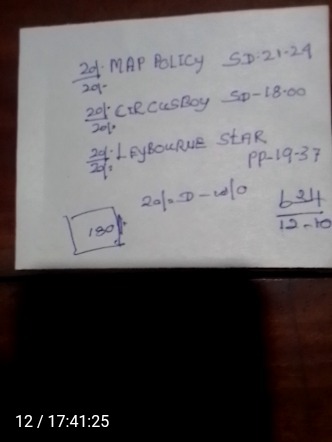 20/- MAP POLICY SD-21-29
20/-
20/- CIRCUSBOY SD-18-00
20/-
20/- LEYBOURNE STAR
20/- PP-19-37
20/- D-
180/- 634
12-10
12 / 17:41:25